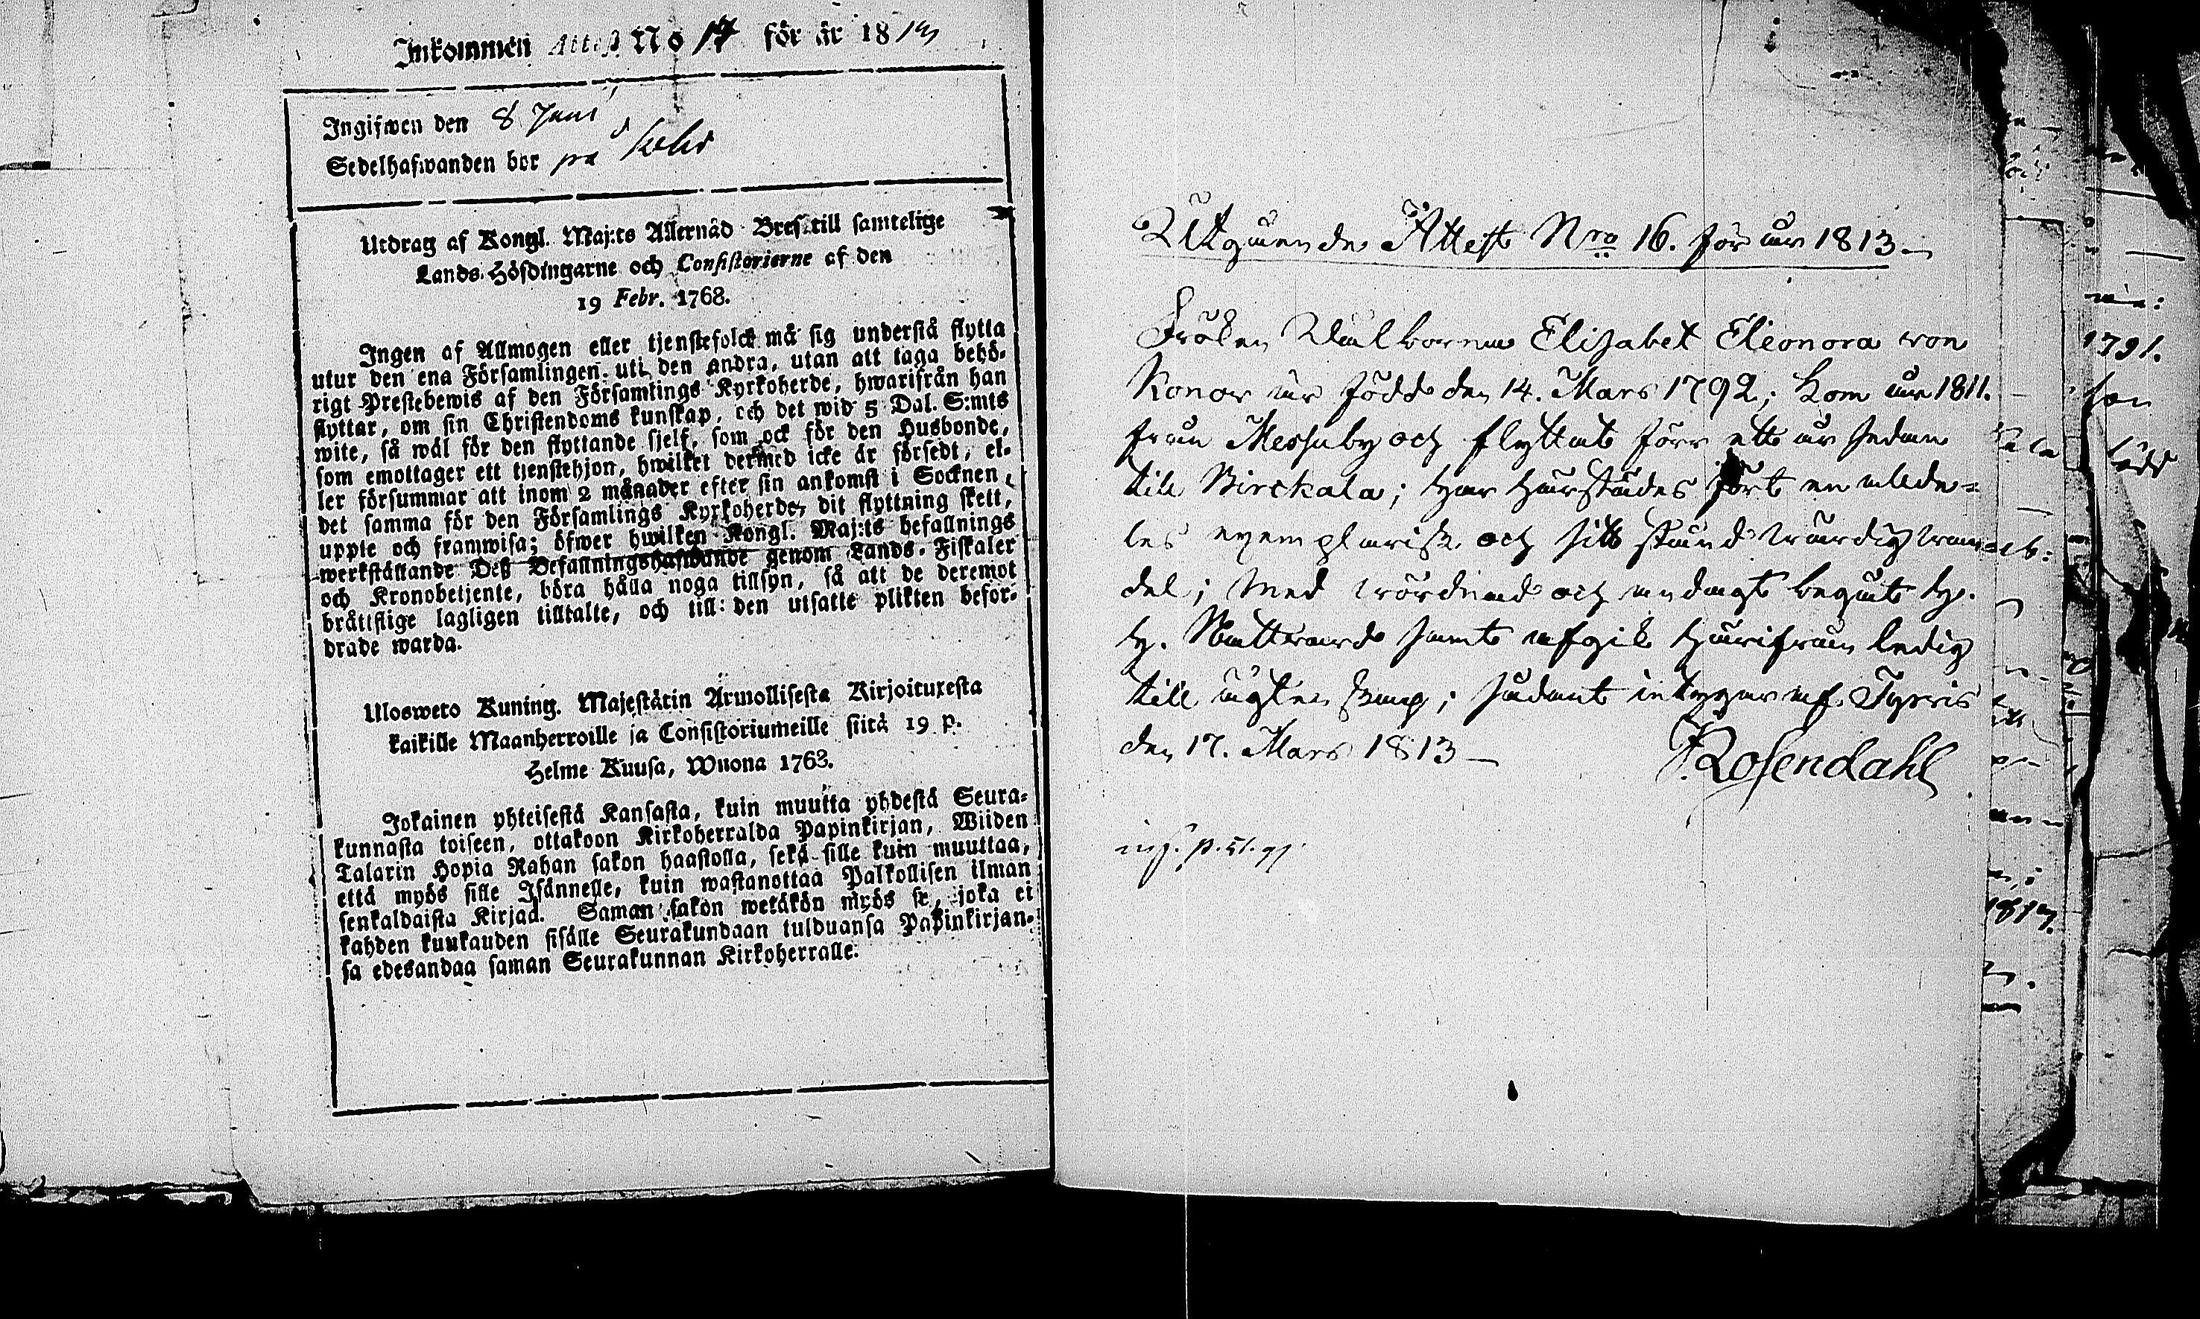 Inkommen Attest No 14 för år 1813
Ingifwen den 8 Juni
Sedelhafwanden bor på
Utdrag af Kongl. Maj:ts Allernåd Bref till samtelige
Lands-Höfdingarne och Consistorierne af den
19 Febr. 1768.
Ingen af Allmogen eller tjenstefolck må sig understå flytta
utur den ena Församlingen uti den andra, utan att taga behö-
rigt Prestebewis af den Församlings Kyrkoherde, hwarifrån han
flyttar, om sin Christendoms kunskap, och det wid 5 Dal. S:mts
wite, så wäl för den flyttande sjelf, som ock för den Husbonde,
som emottager ett tjenstehjon, hwilket dermed icke är försedt, el-
ler försummar att inom 2 månader efter sin ankomst i Socknen,
det samma för den Församlings Kyrkoherde, dit flyttning skett,
uppte och framwisa; öfwer hwilken Kongl. Maj:ts befallnings
werkställande Deß Befallningshafwande genom Lands-Fiskaler
och Kronobetjente, böra hålla noga tillsyn, så att de deremot
bråttslige lagligen tilltalte, och till den utsatte plikten befor-
drade warda.
Ulosweto Kuning. Majestätin Armollisesta Kirjoituxesta
kaikille Maanherroille ja Consistoriumeille siitä 19 p.
Helme Kuusa, Wuona 1763.
Jokainen yhteisestä Kansasta, kuin muutta yhdestä Seura-
kunnasta toiseen, ottakoon Kirkoherralda Papinkirjan, Wiiden
Talarin Hopia Rahan sakon haastolla, sekä sille kuin muuttaa,
että myös sille Isännelle, kuin wastanottaa Palkollisen ilman
senkaldaista Kirjad. Saman sakon wetäkön myös se, joka ei
kahden kuukauden sisälle Seurakundaan tulduansa Papinkirjan-
sa edesandaa saman Seurakunnan Kirkoherralle.
Utgående Attest Nro 16. för år 1813
Fröken Wälborna Elisabet Eleonora von
Konow är född den 14. Mars 1792; kom år 1811.
från Messuby och flyttat förr ett år sedan
till Birckala; har härstädes fört en alede-
les exemplarisk och sitt stånd wärdig wan-
del; med wördnad och andagt begått H.
H. Nattward samt afgik härifrån ledig
till ägtenskap; sådant intygar af Tyrvis
den 17. Mars 1813
Rosendahl
1791.
1813.